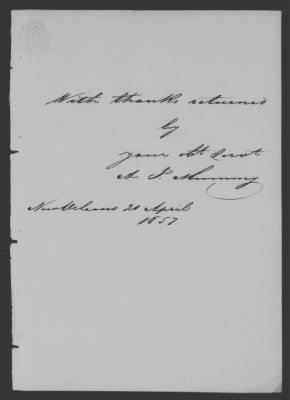 With thanks returned
by
your Obt Servt
A. J.
New Orleans 20 April
1857